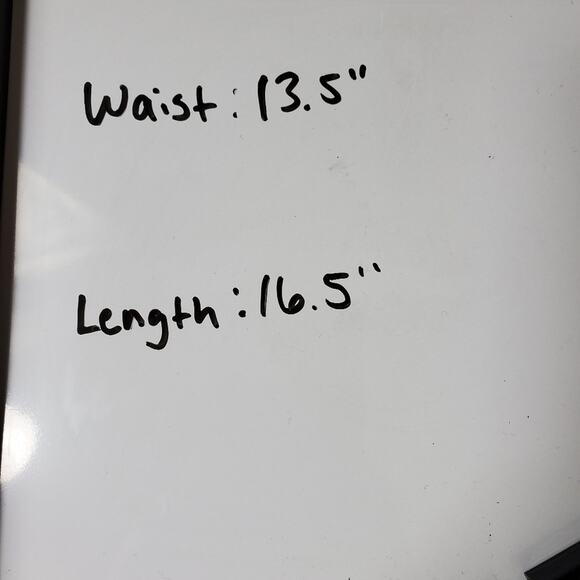 Waist: 13.5"
Length: 16.5"